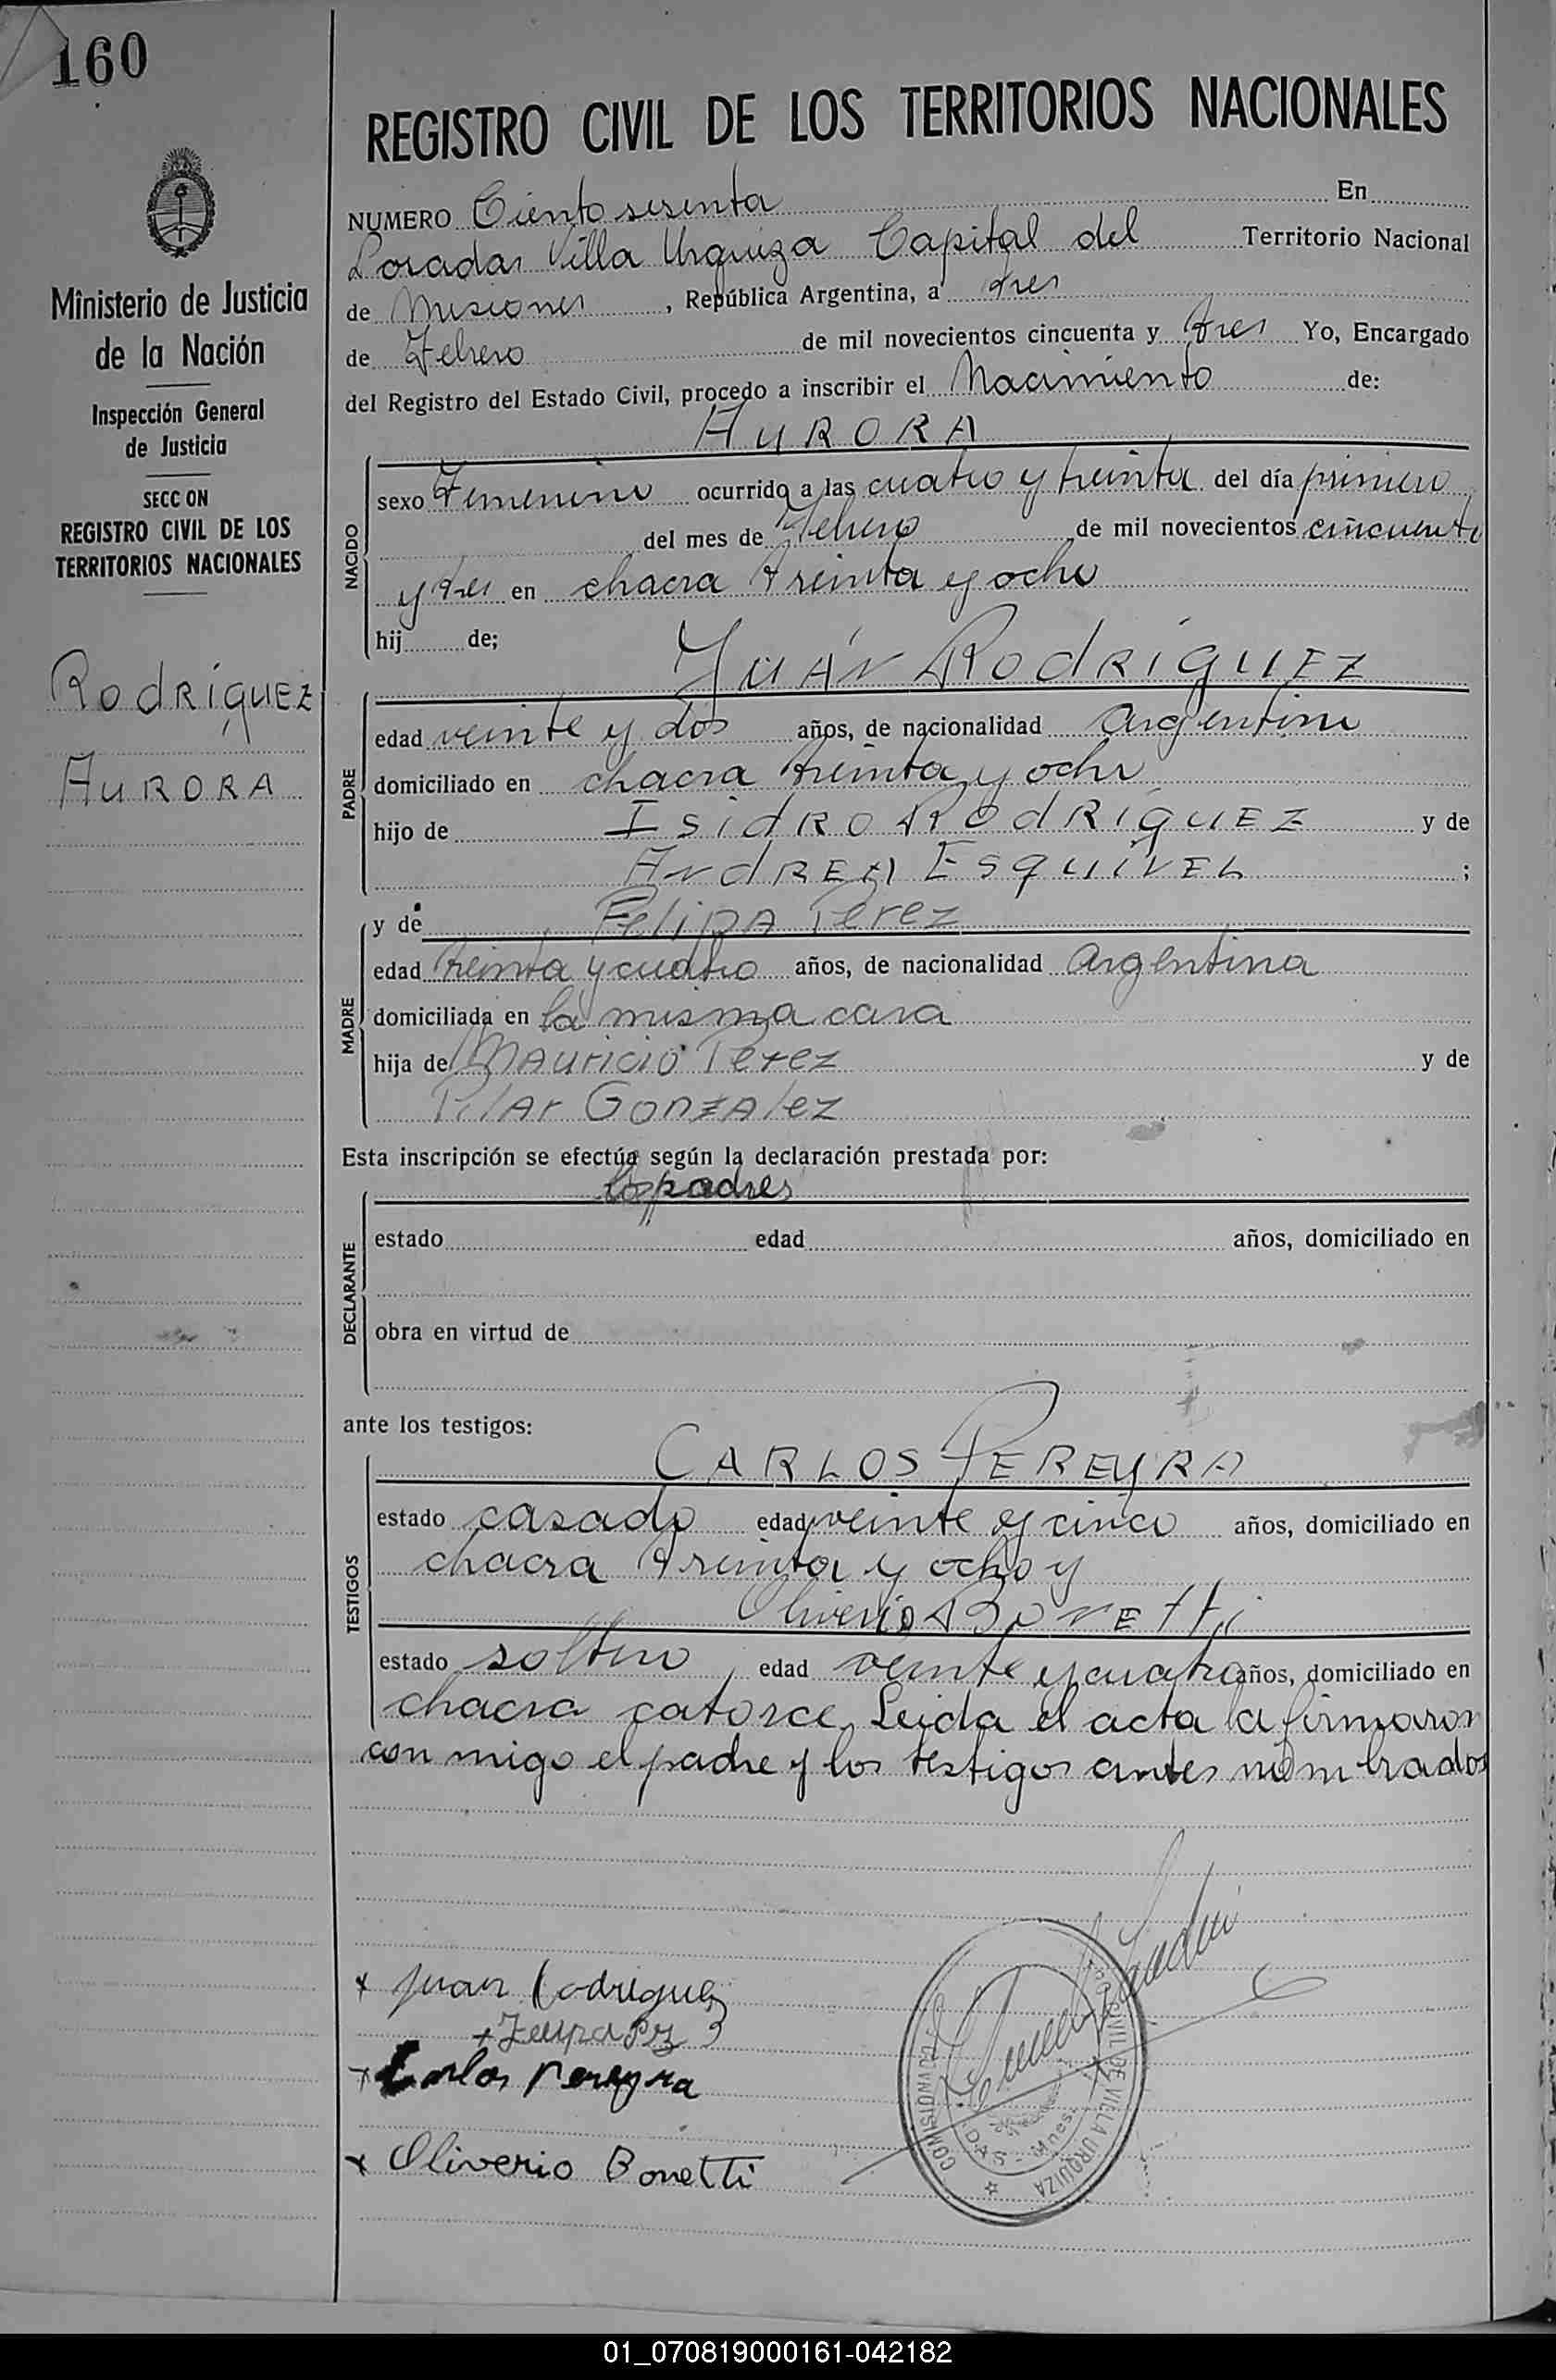 160
Ministerio de Justicia
de la Nación
Inspección General
de Justicia
SECC ON
REGISTRO CIVIL DE LOS
TERRITORIOS NACIONALES
RodRíguEZ
AuRORA
REGISTRO CIVIL DE LOS TERRITORIOS NACIONALES
NUMERO Ciento sesenta En
Posadas Villa Urquiza Capital del Territorio Nacional
de Misiones, República Argentina, a tres
de Febrero de mil novecientos cincuenta y tres Yo, Encargado
del Registro del Estado Civil, procedo a inscribir el Nacimiento de:
AuRORA
NACIDO
sexo Femenino ocurrido a las cuatro y treinta del día primero
del mes de Febrero de mil novecientos cincuenta
y tres en chacra treinta y ocho
hij de;
JuÁN RodRíguEZ
PADRE
edad veinte y dos años, de nacionalidad argentino
domiciliado en chacra treinta y ocho
hijo de IsidRO RodRíguEZ y de
ANdREA EsquivEL ;
y de FelipA Perez
MADRE
edad treinta y cuatro años, de nacionalidad argentina
domiciliada en la misma casa
hija de MAuricio Perez y de
PilAr GonzAlez
Esta inscripción se efectúa según la declaración prestada por:
los padres
DECLARANTE
estado edad años, domiciliado en
obra en virtud de
ante los testigos:
CARLOS PEREyRA
TESTIGOS
estado casado edad veinte y cinco años, domiciliado en
chacra treinta y ocho y
Oliverio BONEtti
estado soltero edad veinte y cuatro años, domiciliado en
chacra catorce. Leida el acta la firmaron
con migo el padre y los testigos antes nombrados
x Juan Rodriguez
+
+ Carlos Pereyra
x Oliverio Bonetti
CIVIL DE VILLA URQUIZA
DAS - Mnes.
01_070819000161-042182